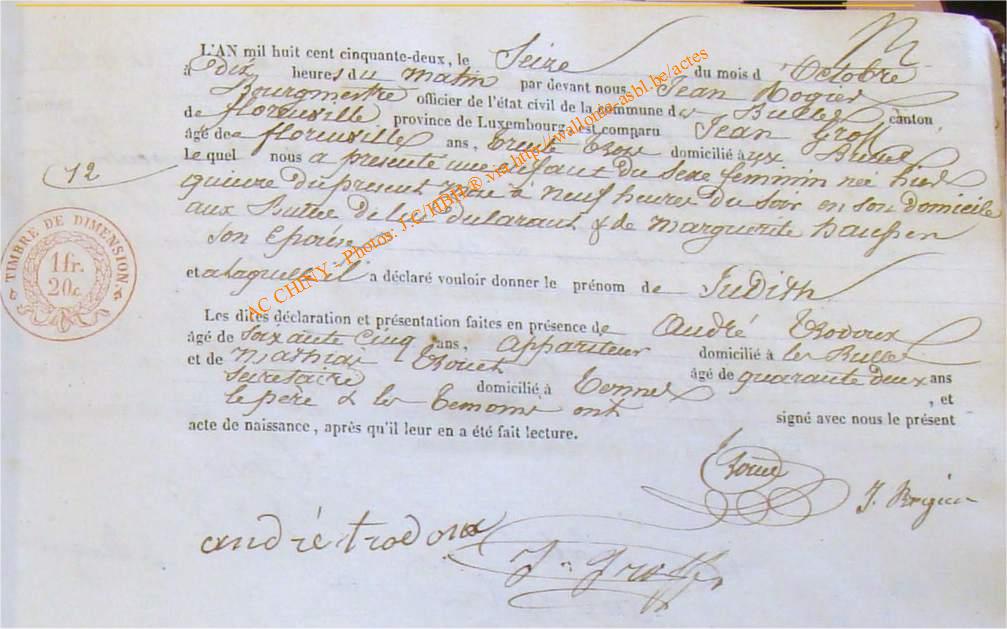 L'AN mil huit cent cinquante-deux, le Seize du mois d'Octobre
à dix heures du matin par devant nous Jean Rogier
Bourgmestre officier de l'état civil de la commune des Bulles, canton
de florenville province de Luxembourg, est comparu Jean Groff
âgé de ans, trente domicilié aux Bulles
le quel nous a présenté une enfant du Sexe feminin née hier
quinze du présent mois à neuf heures du Soir en son domicile
aux Bulles de lui déclarant & de Marguerite
Son Epouse
et a laquelle il a déclaré vouloir donner le prénom de Judith
Les dites déclaration et présentation faites en présence de André Trodoux
âgé de Soixante Cinq ans, appariteur domicilié à les Bulles
et de Mathias âgé de quarante deux ans
Secretaire domicilié à , et
le père & les temoins ont signé avec nous le présent
acte de naissance, après qu'il leur en a été fait lecture.
12
TIMBRE DE DIMENSION.
1 fr.
20c
andré trodoux
J. Groff
AC CHINY - Photos: J.C HBH ® via http://wallonia-asbl.be/actes